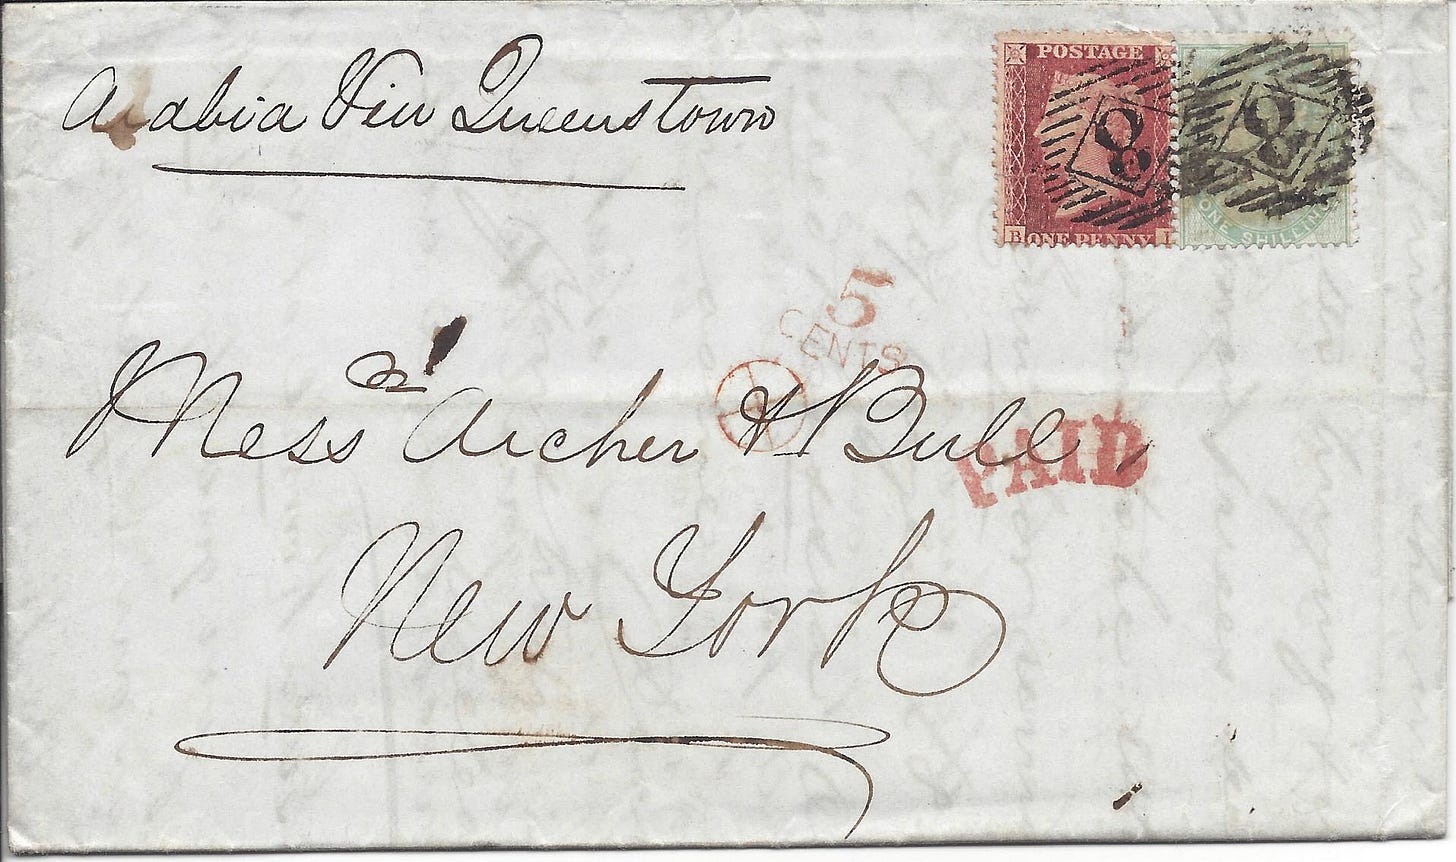 Arabia Via Queenstown
POSTAGE
B ONE PENNY I
ONE SHILLING
5
CENTS
Messrs Archer & Bull,
PAID
New York